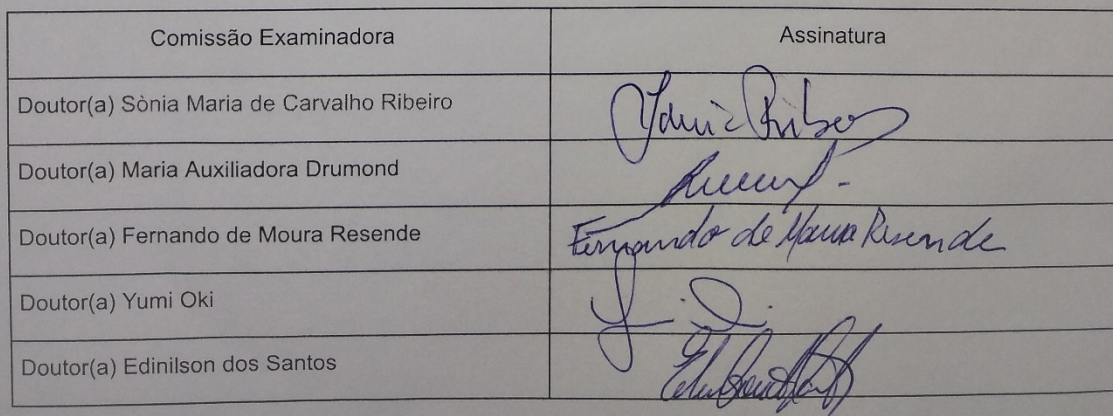 Comissão Examinadora Assinatura
Doutor(a) Sònia Maria de Carvalho Ribeiro
Doutor(a) Maria Auxiliadora Drumond
Doutor(a) Fernando de Moura Resende Fernando de Moura Resende
Doutor(a) Yumi Oki
Doutor(a) Edinilson dos Santos